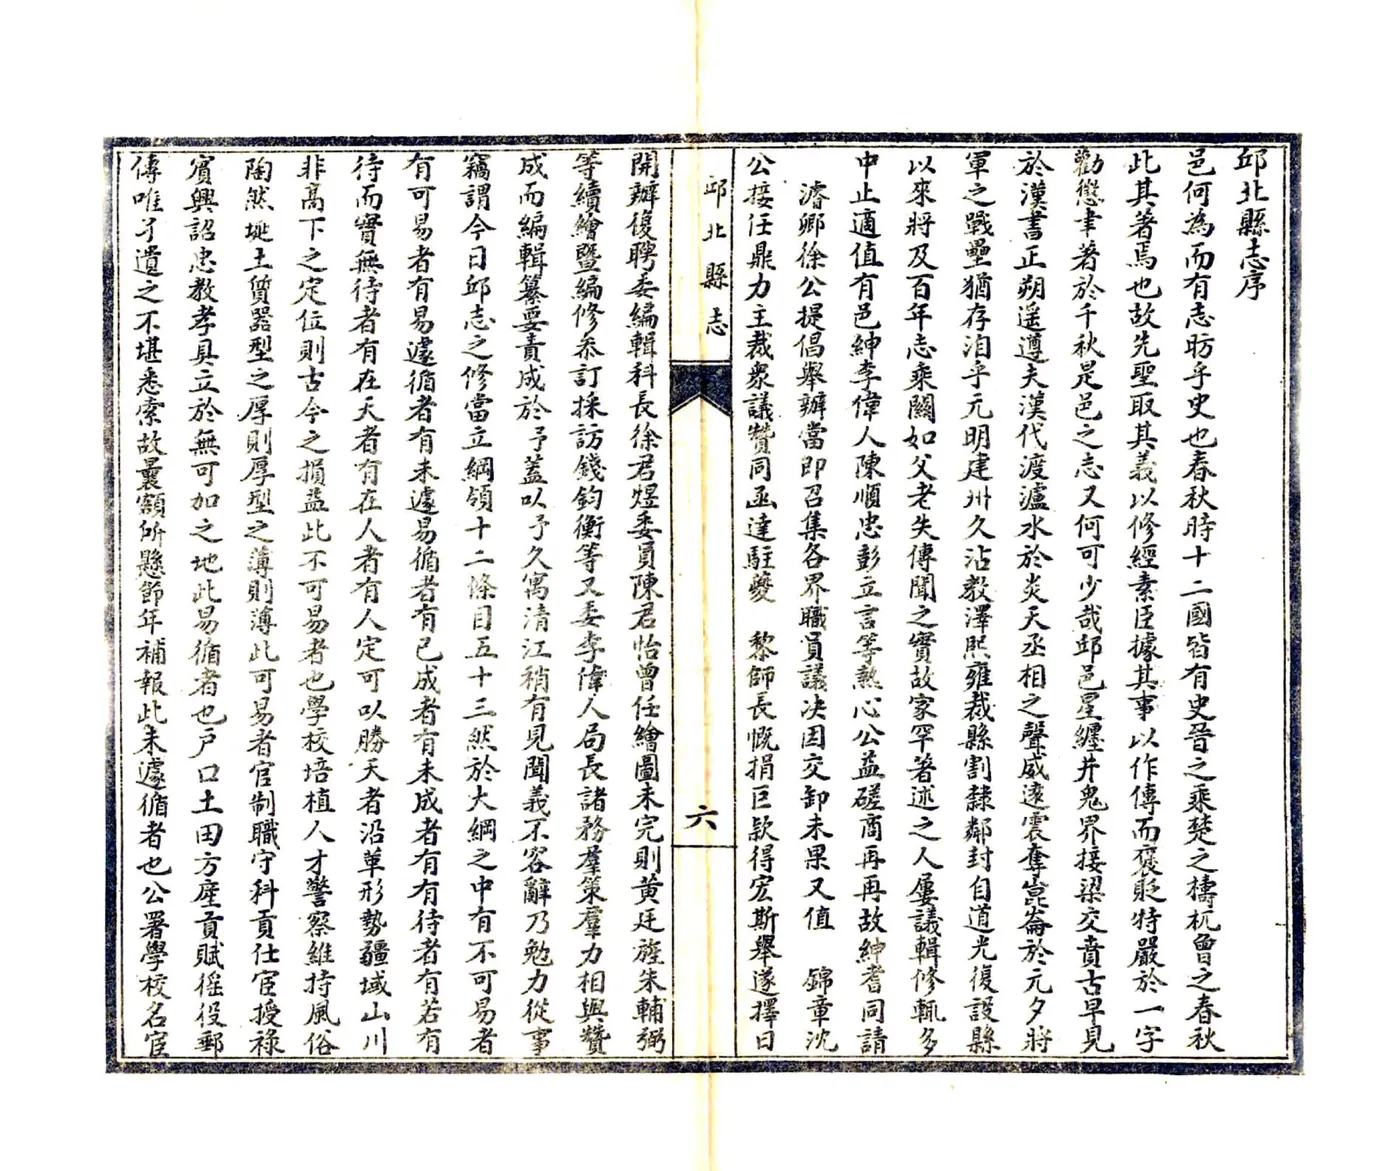 邱北縣志序
邑何為而有志昉乎史也春秋時十二國皆有史晉之乘楚之檮杌魯之春秋
此其著焉也故先聖取其義以修經素臣據其事以作傳而褒貶特嚴於一字
勸懲聿著於千秋是邑之志又何可少哉邱邑星纏井鬼界接梁交賁古早見
於漢書正朔遥遵夫漢代渡瀘水於炎天丞相之聲威遠震奪崑崙於元夕將
軍之戰壘猶存洎乎元明建州久沾教澤熙雍裁縣割隸鄰封自道光復設縣
以來將及百年志乘闕如父老失傳聞之實故家罕著述之人屢議輯修輒多
中止適值有邑紳李偉人陳順忠彭立言等熱心公益磋商再再故紳耆同請
濬卿徐公提倡舉辦當即召集各界職員議决因交卸未果又值 錦章沈
公接任鼎力主裁衆議贊同函達駐夔 黎師長慨捐巨欵得宏斯舉遂擇日
邱北縣志
六
開辦復聘委編輯科長徐君煜委員陳君怡曾任繪圖未完則黄廷旌朱輔弼
等續繪暨編修叅訂採訪錢鈞衡等又委李偉人局長諸務羣策羣力相與贊
成而編輯纂要責成於予蓋以予久寓清江稍有見聞義不容辭乃勉力從事
竊謂今日邱志之修當立綱領十二條目五十三然於大綱之中有不可易者
有可易者有易遽循者有未遽易循者有已成者有未成者有有待者有若有
待而實無待者有在天者有在人者有人定可以勝天者沿革形勢疆域山川
非高下之定位則古今之損益此不可易者也學校培植人才警察維持風俗
陶然埏土質器型之厚則厚型之薄則薄此可易者官制職守科貢仕宦授祿
賓興詔忠教孝具立於無可加之地此易循者也戸口土田方産貢賦徭役郵
傳唯孑遺之不堪悉索故曩額所懸節年補報此未遽循者也公署學校名宦